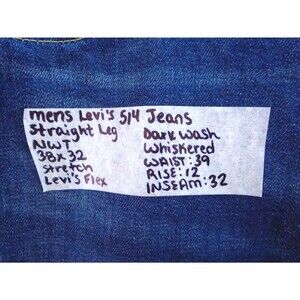 mens Levi's 514 Jeans
Straight Leg Dark Wash
NWT Whiskered
38x32 WAIST: 39
Stretch RISE: 12
Levi's Flex INSEAM: 32